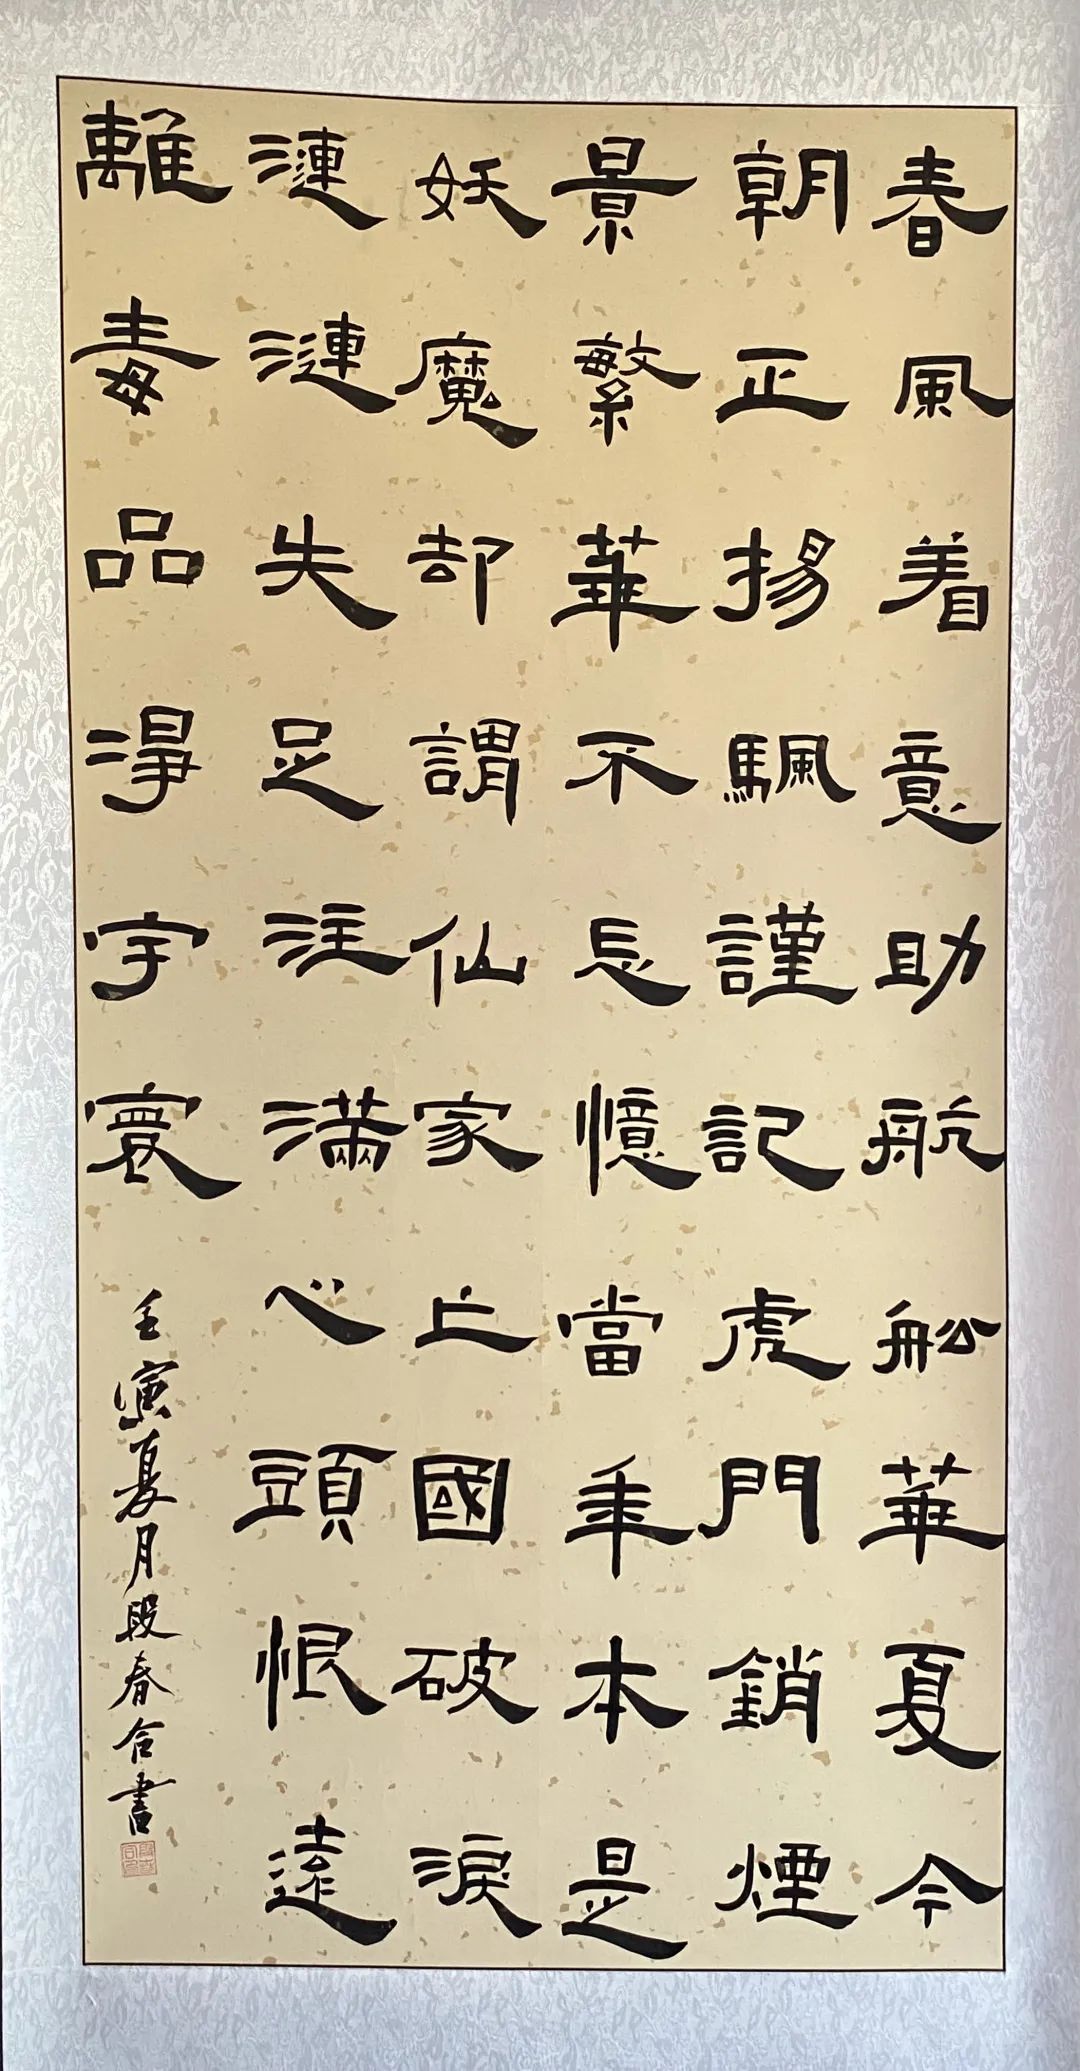 春風着意助航船華夏今
朝正揚颿謹記虎門銷煙
景繁華不忘憶當年本是
妖魔却謂仙家亡國破淚
漣漣失足注滿心頭恨遠
離毒品淨宇寰
壬寅夏月段春合書